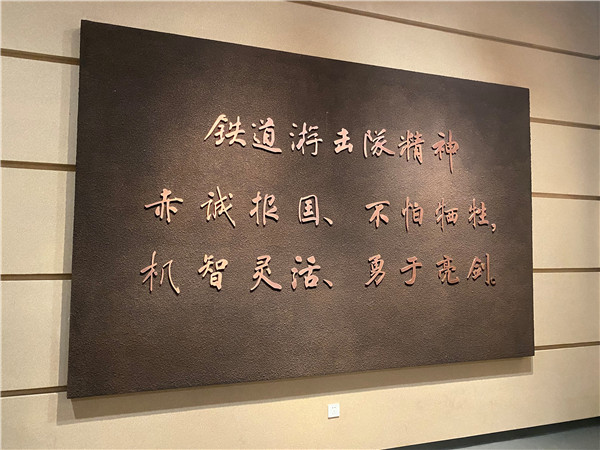 铁道游击队精神
赤诚报国、不怕牺牲，
机智灵活、勇于亮剑。